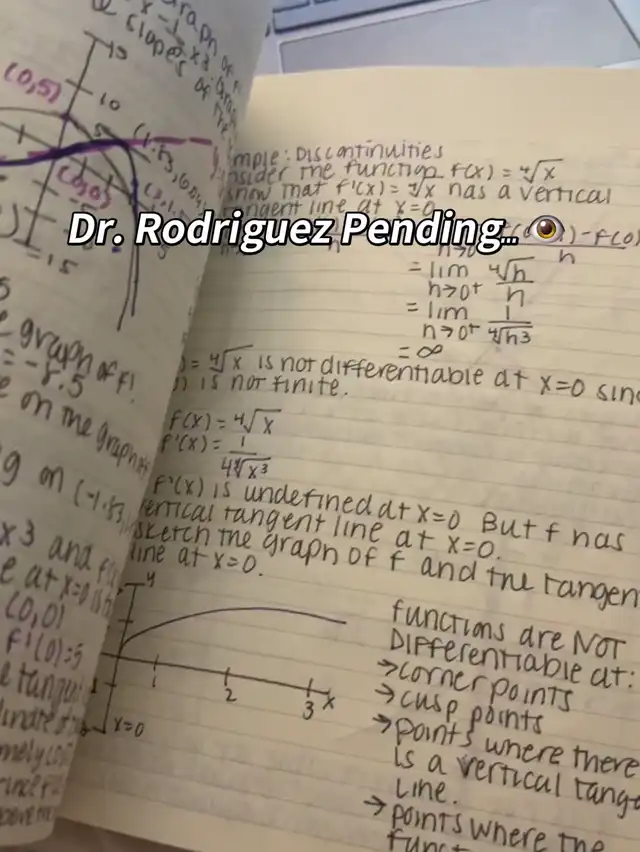 graph of f
x - 1/2 x3
slopes of the
15
10
5
(0,5)
(0,0)
-15
graph of f!
= -8.5
e on the graph of
g on (-1.83,
x3 and f
e at x=0 is
(0,0)
f'(0)=5
e tangen
mple: Discontinuities
nsider the function f(x) = ⁴√x
show that f'(x) = ⁴√x has a vertical
tangent line at x=0
Dr. Rodriguez Pending... 👁️
) - f(0)
h
= lim ⁴√h
h→0⁺ h
= lim 1
h→0⁺ ⁴√h³
= ∞
) = ⁴√x is not differentiable at x=0 sinc
is not finite.
f(x) = ⁴√x
f'(x) = 1
4⁴√x³
f'(x) is undefined at x=0 But f has
vertical tangent line at x=0.
sketch the graph of f and the tangen
line at x=0.
y
1 2 3 x
x=0
functions are NOT
Differentiable at:
→ corner points
→ cusp points
→ points where there
is a vertical tange
line.
→ points where the
funct